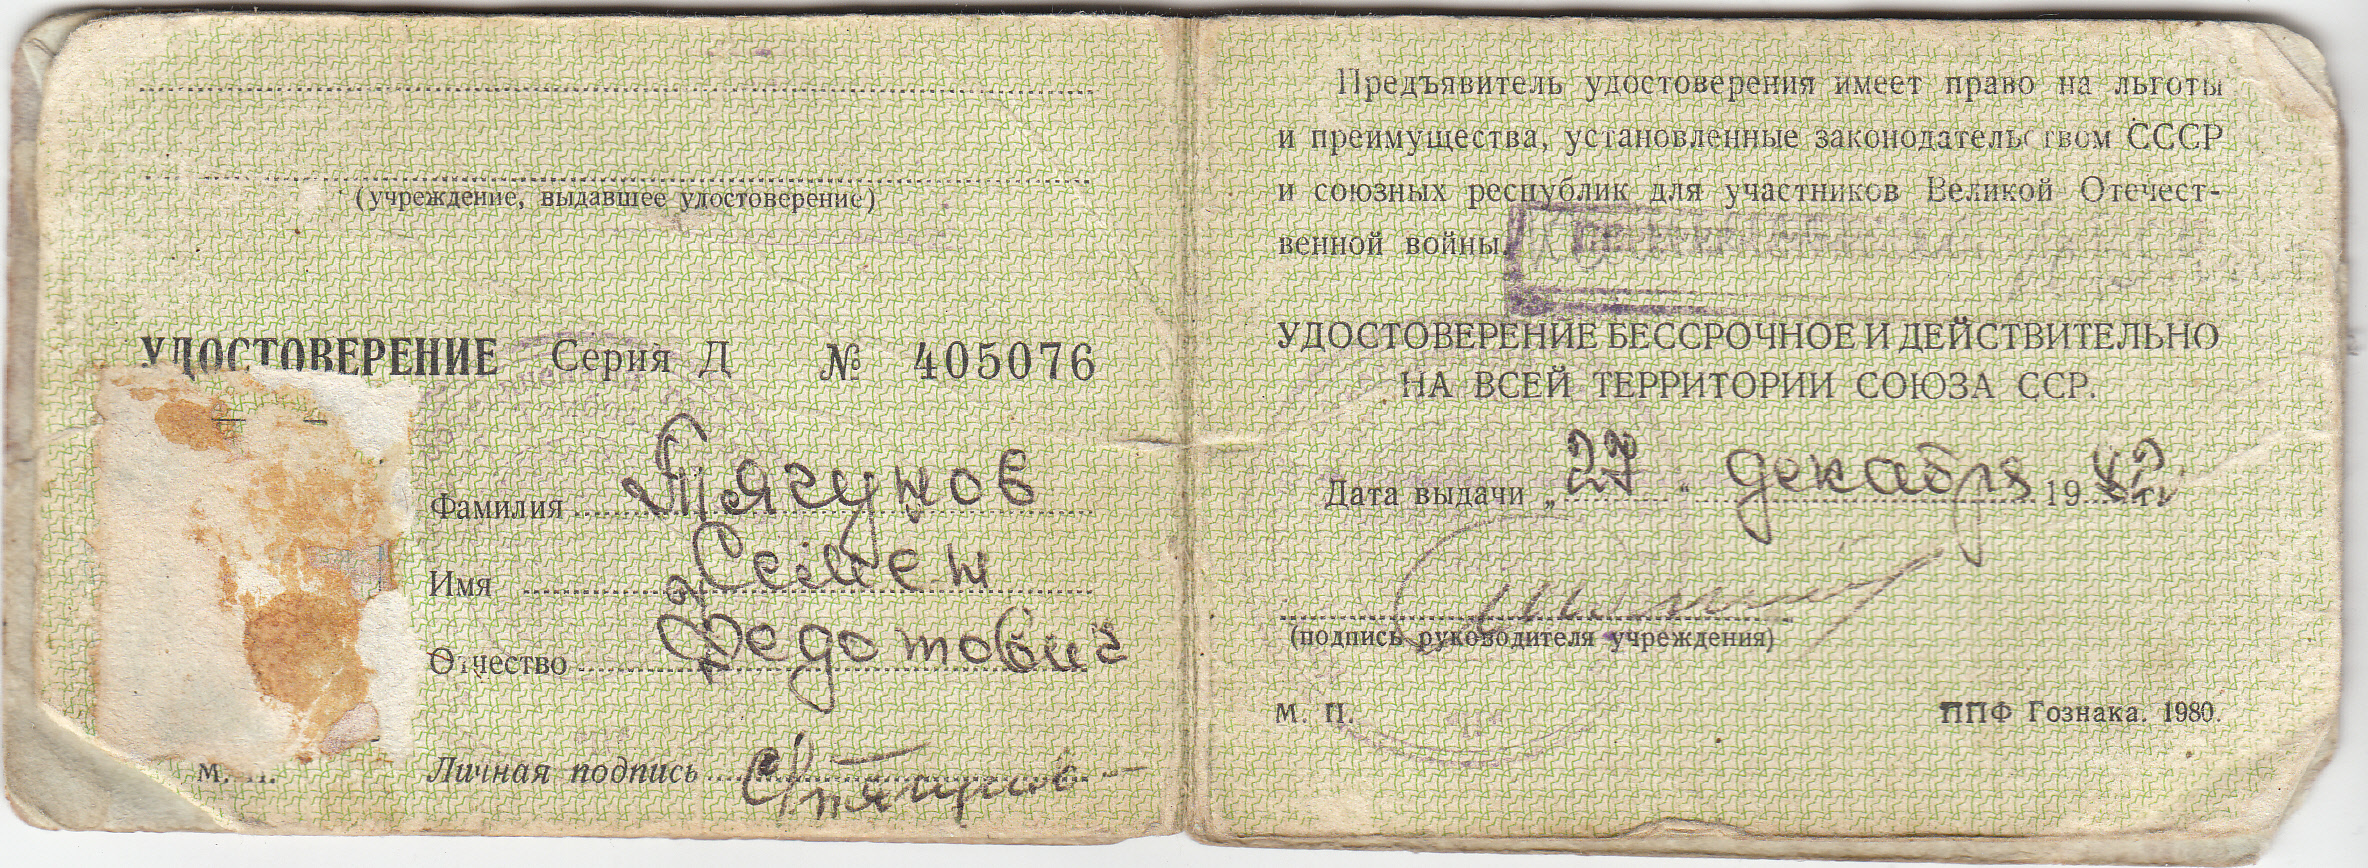 (учреждение, выдавшее удостоверение)
УДОСТОВЕРЕНИЕ Серия Д № 405076
Фамилия Тягунов
Имя Семен
Отчество Федотович
М. П.
Личная подпись С Тягунов
Предъявитель удостоверения имеет право на льготы
и преимущества, установленные законодательством СССР
и союзных республик для участников Великой Отечест-
венной войны
УДОСТОВЕРЕНИЕ БЕССРОЧНОЕ И ДЕЙСТВИТЕЛЬНО
НА ВСЕЙ ТЕРРИТОРИИ СОЮЗА ССР.
Дата выдачи „27“ декабря 1982 г.
(подпись руководителя учреждения)
М. П.
ППФ Гознака. 1980.